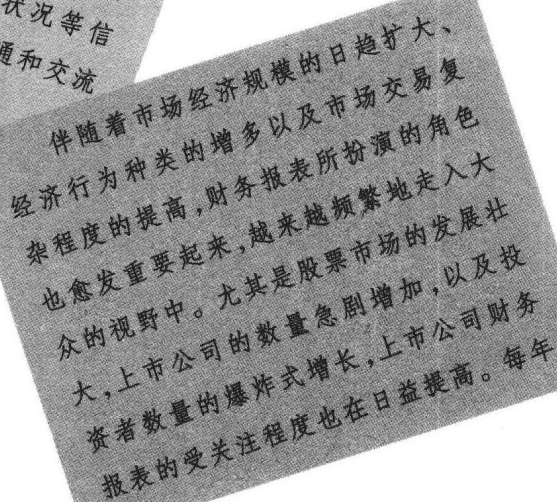 状况等信
通和交流
伴随着市场经济规模的日趋扩大、
经济行为种类的增多以及市场交易复
杂程度的提高,财务报表所扮演的角色
也愈发重要起来,越来越频繁地走入大
众的视野中。尤其是股票市场的发展壮
大,上市公司的数量急剧增加,以及投
资者数量的爆炸式增长,上市公司财务
报表的受关注程度也在日益提高。每年